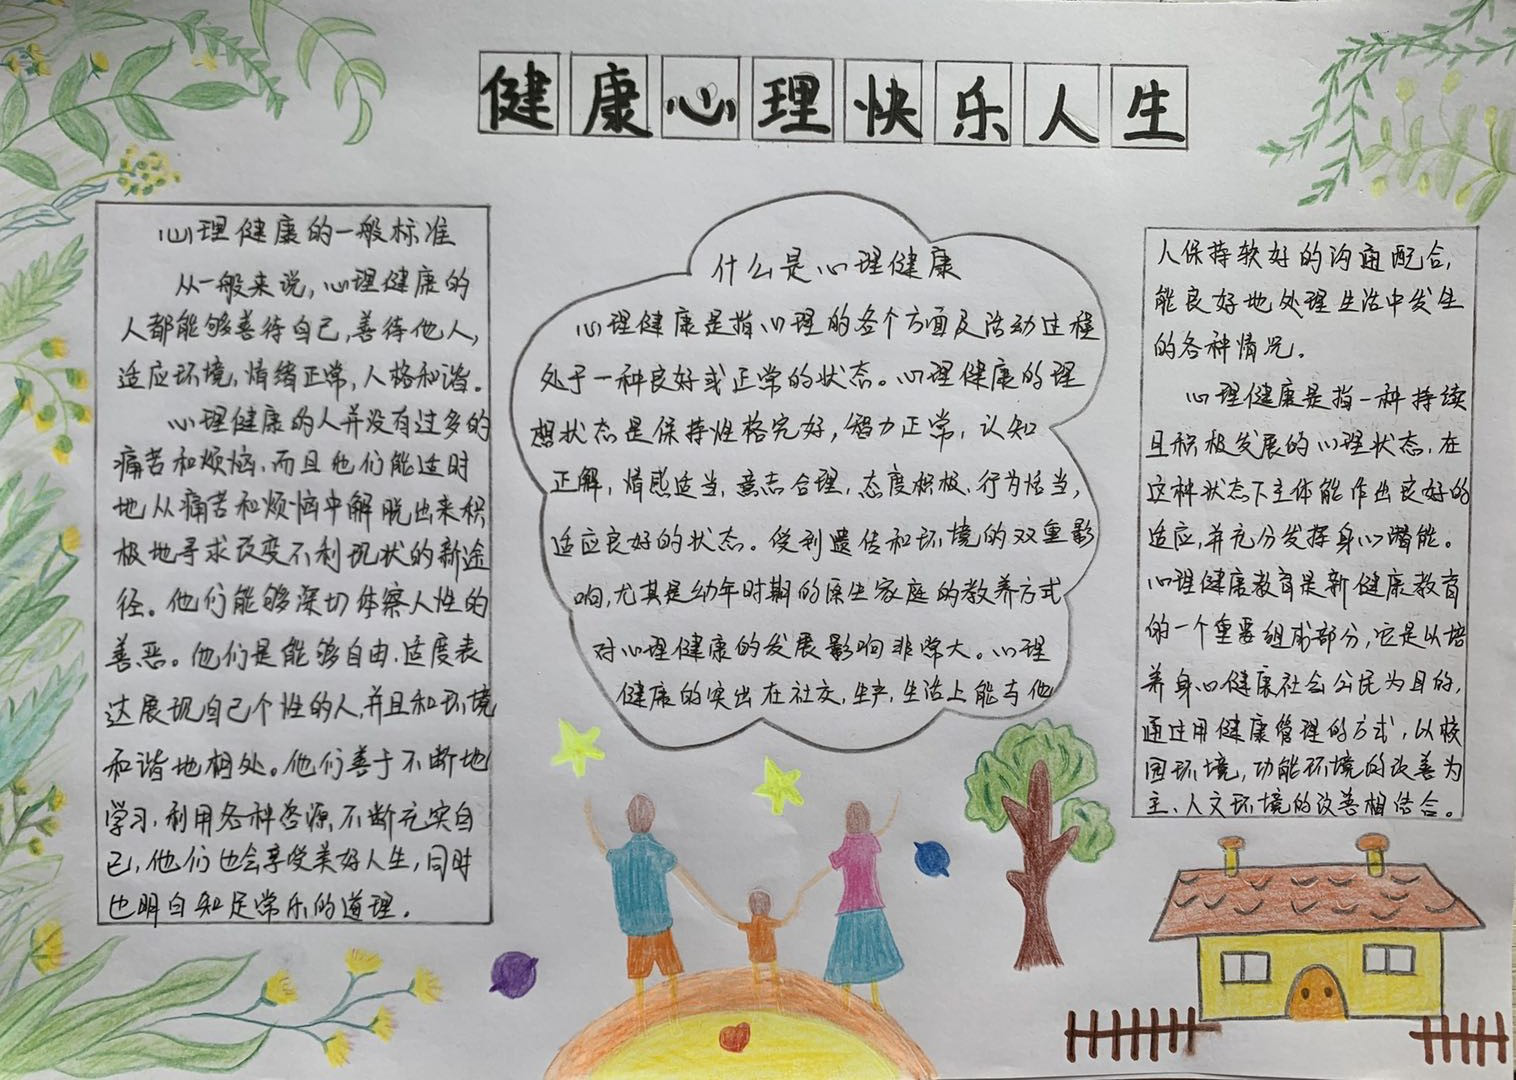 健康心理快乐人生
心理健康的一般标准
从一般来说，心理健康的
人都能够善待自己，善待他人，
适应环境，情绪正常，人格和谐。
心理健康的人并没有过多的
痛苦和烦恼，而且他们能适时
地从痛苦和烦恼中解脱出来积
极地寻求改变不利现状的新途
径。他们能够深切体察人性的
善恶。他们是能够自由、适度表
达展现自己个性的人，并且和环境
和谐地相处。他们善于不断地
学习，利用各种资源，不断充实自
己，他们也会享受美好人生，同时
也明白知足常乐的道理。
什么是心理健康
心理健康是指心理的各个方面及活动过程
处于一种良好或正常的状态。心理健康的理
想状态是保持性格完好，智力正常，认知
正解，情感适当，意志合理，态度积极，行为恰当，
适应良好的状态。受到遗传和环境的双重影
响，尤其是幼年时期的原生家庭的教养方式
对心理健康的发展影响非常大。心理
健康的突出在社交，生产，生活上能与他
人保持较好的沟通配合，
能良好地处理生活中发生
的各种情况。
心理健康是指一种持续
且积极发展的心理状态，在
这种状态下主体能作出良好的
适应，并充分发挥身心潜能。
心理健康教育是新健康教育
的一个重要组成部分，它是以培
养身心健康社会公民为目的，
通过用健康管理的方式，以校
园环境，功能环境的改善为
主、人文环境的改善相结合。